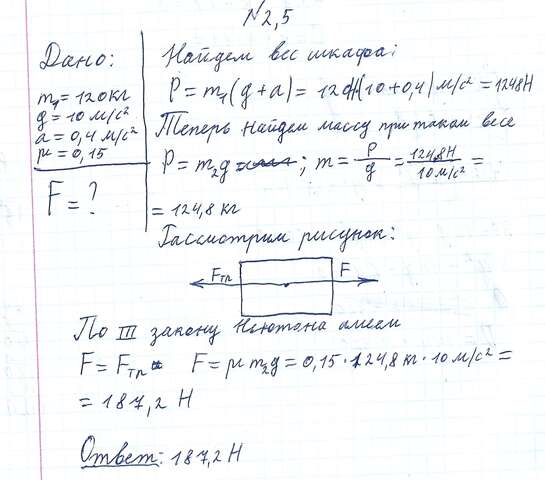 №2,5
Дано:
m₁ = 120 кг
g = 10 м/с²
a = 0,4 м/с²
μ = 0,15
F = ?
Найдем вес шкафа:
P = m₁(g + a) = 120(10 + 0,4) м/с² = 1248 Н
Теперь найдем массу при таком весе
P = m₂g ; m = P/g = 1248 Н / 10 м/с² =
= 124,8 кг
Рассмотрим рисунок:
Fтр F
По III закону Ньютона имеем
F = Fтр F = μ m₂g = 0,15 · 124,8 кг · 10 м/с² =
= 187,2 Н
Ответ: 187,2 Н